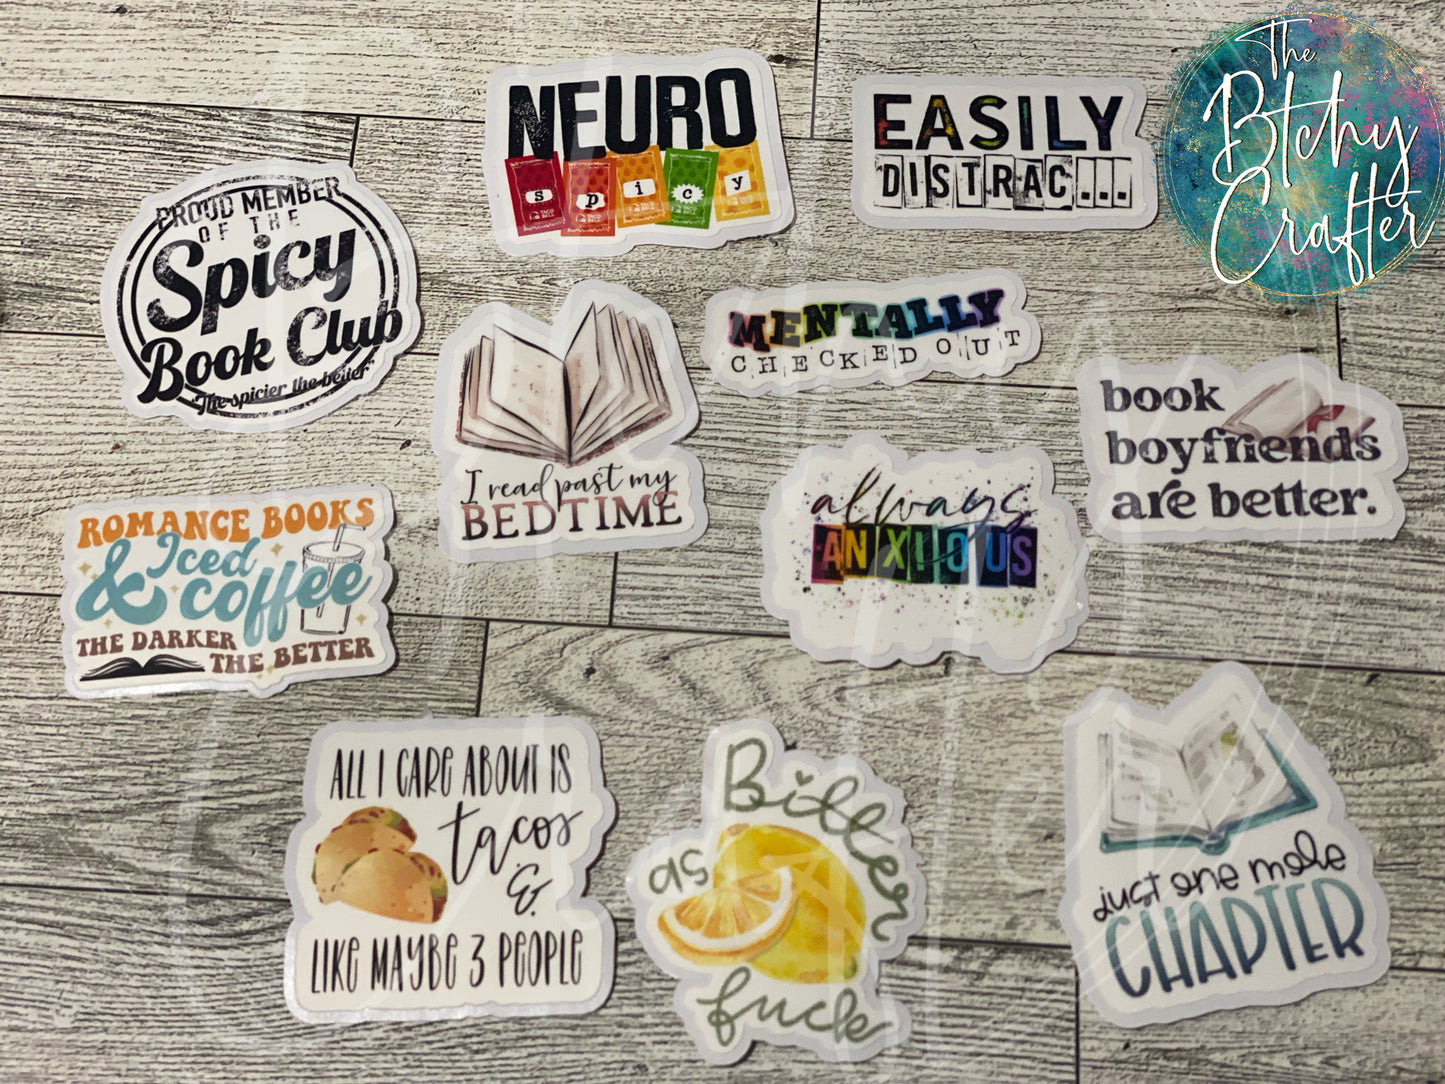 The
Btchy
Crafter
NEURO
spicy
TACO BELL
TACO BELL
TACO BELL
TACO BELL
EASILY
DISTRAC...
PROUD MEMBER
OF THE
Spicy
Book Club
The spicier the better
I read past my
BEDTIME
MENTALLY
CHECKED OUT
book
boyfriends
are better.
ROMANCE BOOKS
& Iced
coffee
THE DARKER
THE BETTER
always
ANXIOUS
ALL I CARE ABOUT IS
tacos
&
LIKE MAYBE 3 PEOPLE
Bitter
as
fuck
just one more
CHAPTER